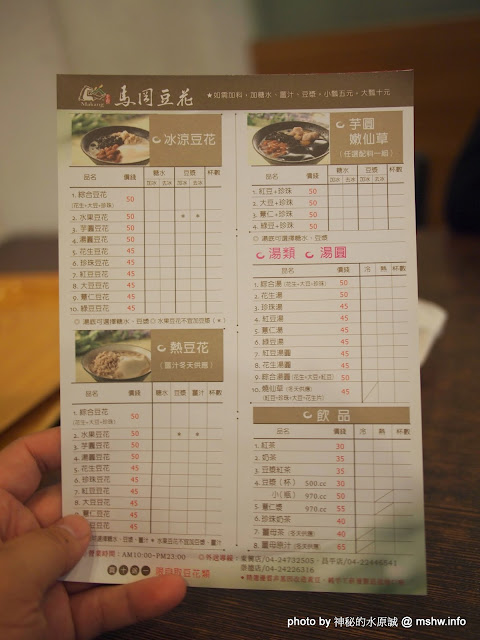 Makang 馬岡豆花 ★如需加料，加糖水、薑汁、豆漿，小瓢五元，大瓢十元
冰涼豆花
品名 價錢 糖水 豆漿 杯數
加冰 去冰 加冰 去冰
1. 綜合豆花 50
(花生+大豆+珍珠)
2. 水果豆花 50 * *
3. 芋圓豆花 50
4. 湯圓豆花 50
5. 花生豆花 45
6. 珍珠豆花 45
7. 紅豆豆花 45
8. 大豆豆花 45
9. 薏仁豆花 45
10. 綠豆豆花 45
◎湯底可選擇糖水、豆漿◎水果豆花不宜加豆漿 (*)
熱豆花
(薑汁冬天供應)
品名 價錢 糖水 豆漿 薑汁 杯數
1. 綜合豆花 50
(花生+大豆+珍珠)
2. 水果豆花 50 * *
3. 芋圓豆花 50
4. 湯圓豆花 50
5. 花生豆花 45
6. 珍珠豆花 45
7. 紅豆豆花 45
8. 大豆豆花 45
9. 薏仁豆花 45
豆豆花 45
芋圓
嫩仙草
(任選配料一組)
品名 價錢 糖水 豆漿 杯數
加冰 去冰 加冰 去冰
1. 紅豆+珍珠 50
2. 大豆+珍珠 50
3. 薏仁+珍珠 50
4. 綠豆+珍珠 50
◎ 湯底可選擇糖水、豆漿
湯類 湯圓
品名 價錢 冷 熱 杯數
1. 綜合湯 (花生+大豆+珍珠) 50
2. 花生湯 45
3. 珍珠湯 45
4. 紅豆湯 45
5. 薏仁湯 45
6. 綠豆湯 45
7. 紅豆湯圓 45
8. 花生湯圓 45
9. 綜合湯圓 (花生+大豆+紅豆) 50
10. 燒仙草 (冬天供應) 45
(紅豆+珍珠+大豆+花生片)
飲品
品名 價錢 冷 熱 杯數
1. 紅茶 30
2. 奶茶 35
3. 豆漿紅茶 35
4. 豆漿 (杯) 500.cc 30
小(瓶) 970.cc 50
5. 薏仁漿 970.cc 55
6. 珍珠奶茶 40
7. 薑母茶 (冬天供應) 40
8. 薑母原汁 (冬天供應) 65
營業時間：AM10:00~PM23:00
◎外送專線：東興店/04-24732505、昌平店/04-22446841
崇德店/04-24226316
買十送一
photo by 神秘的水原誠 @ mshw.info